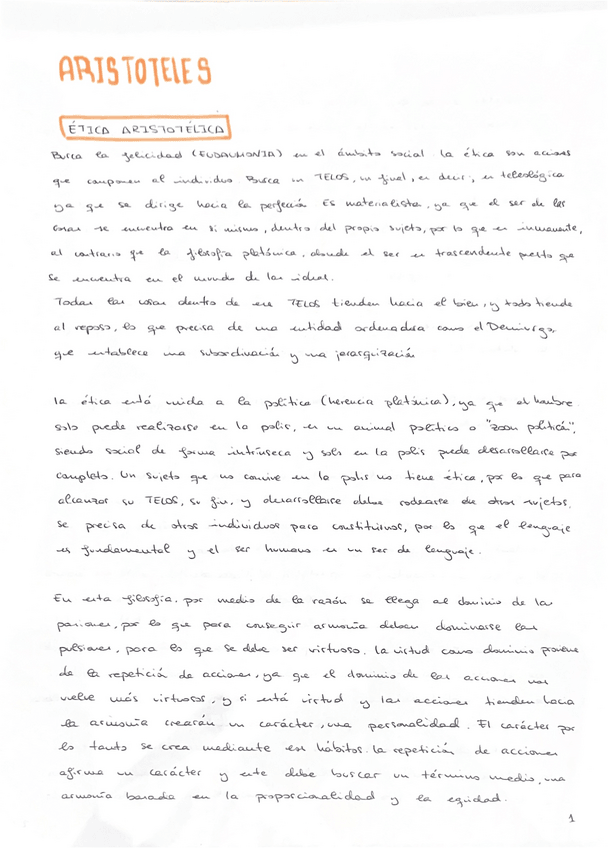 ARISTOTELES
ÉTICA ARISTOTÉLICA
Busca la felicidad (EUDAIMONIA) en el ámbito social. la ética son acciones
que componen al individuo. Busca un TELOS, su final, es decir, es teleológica
ya que se dirige hacia la perfección. Es materialista, ya que el ser de las
cosas se encuentra en si mismo, dentro del propio sujeto, por lo que es inmanente,
al contrario que la filosofía platónica, donde el ser es trascendente puesto que
se encuentra en el mundo de las ideas.
Todas las cosas dentro de ese TELOS tienden hacia el bien, y todo tiende
al reposo, lo que precisa de una entidad ordenadora como el Demiurgo,
que establece una subordinación y una jerarquización
la ética está unida a la política (herencia platónica), ya que el hombre
solo puede realizarse en la polis, es un animal político o "zoon politikón",
siendo social de forma intrínseca y solo en la polis puede desarrollarse por
completo. Un sujeto que no convive en la polis no tiene ética, por lo que para
alcanzar su TELOS, su fin, y desarrollarse debe rodearse de otros sujetos.
Se precisa de otros individuos para constituirnos, por lo que el lenguaje
es fundamental y el ser humano es un ser de lenguaje.
En esta filosofía, por medio de la razón se llega al dominio de las
pasiones, por lo que para conseguir armonía deben dominarse las
pulsiones, para lo que se debe ser virtuoso. la virtud como dominio proviene
de la repetición de acciones, ya que el dominio de las acciones nos
vuelve más virtuosos, y si está virtud y las acciones tienden hacia
la armonía crearán un carácter, una personalidad. El carácter por
lo tanto se crea mediante esos hábitos. la repetición de acciones
afirma un carácter y este debe buscar un término medio, una
armonía basada en la proporcionalidad y la equidad.
1